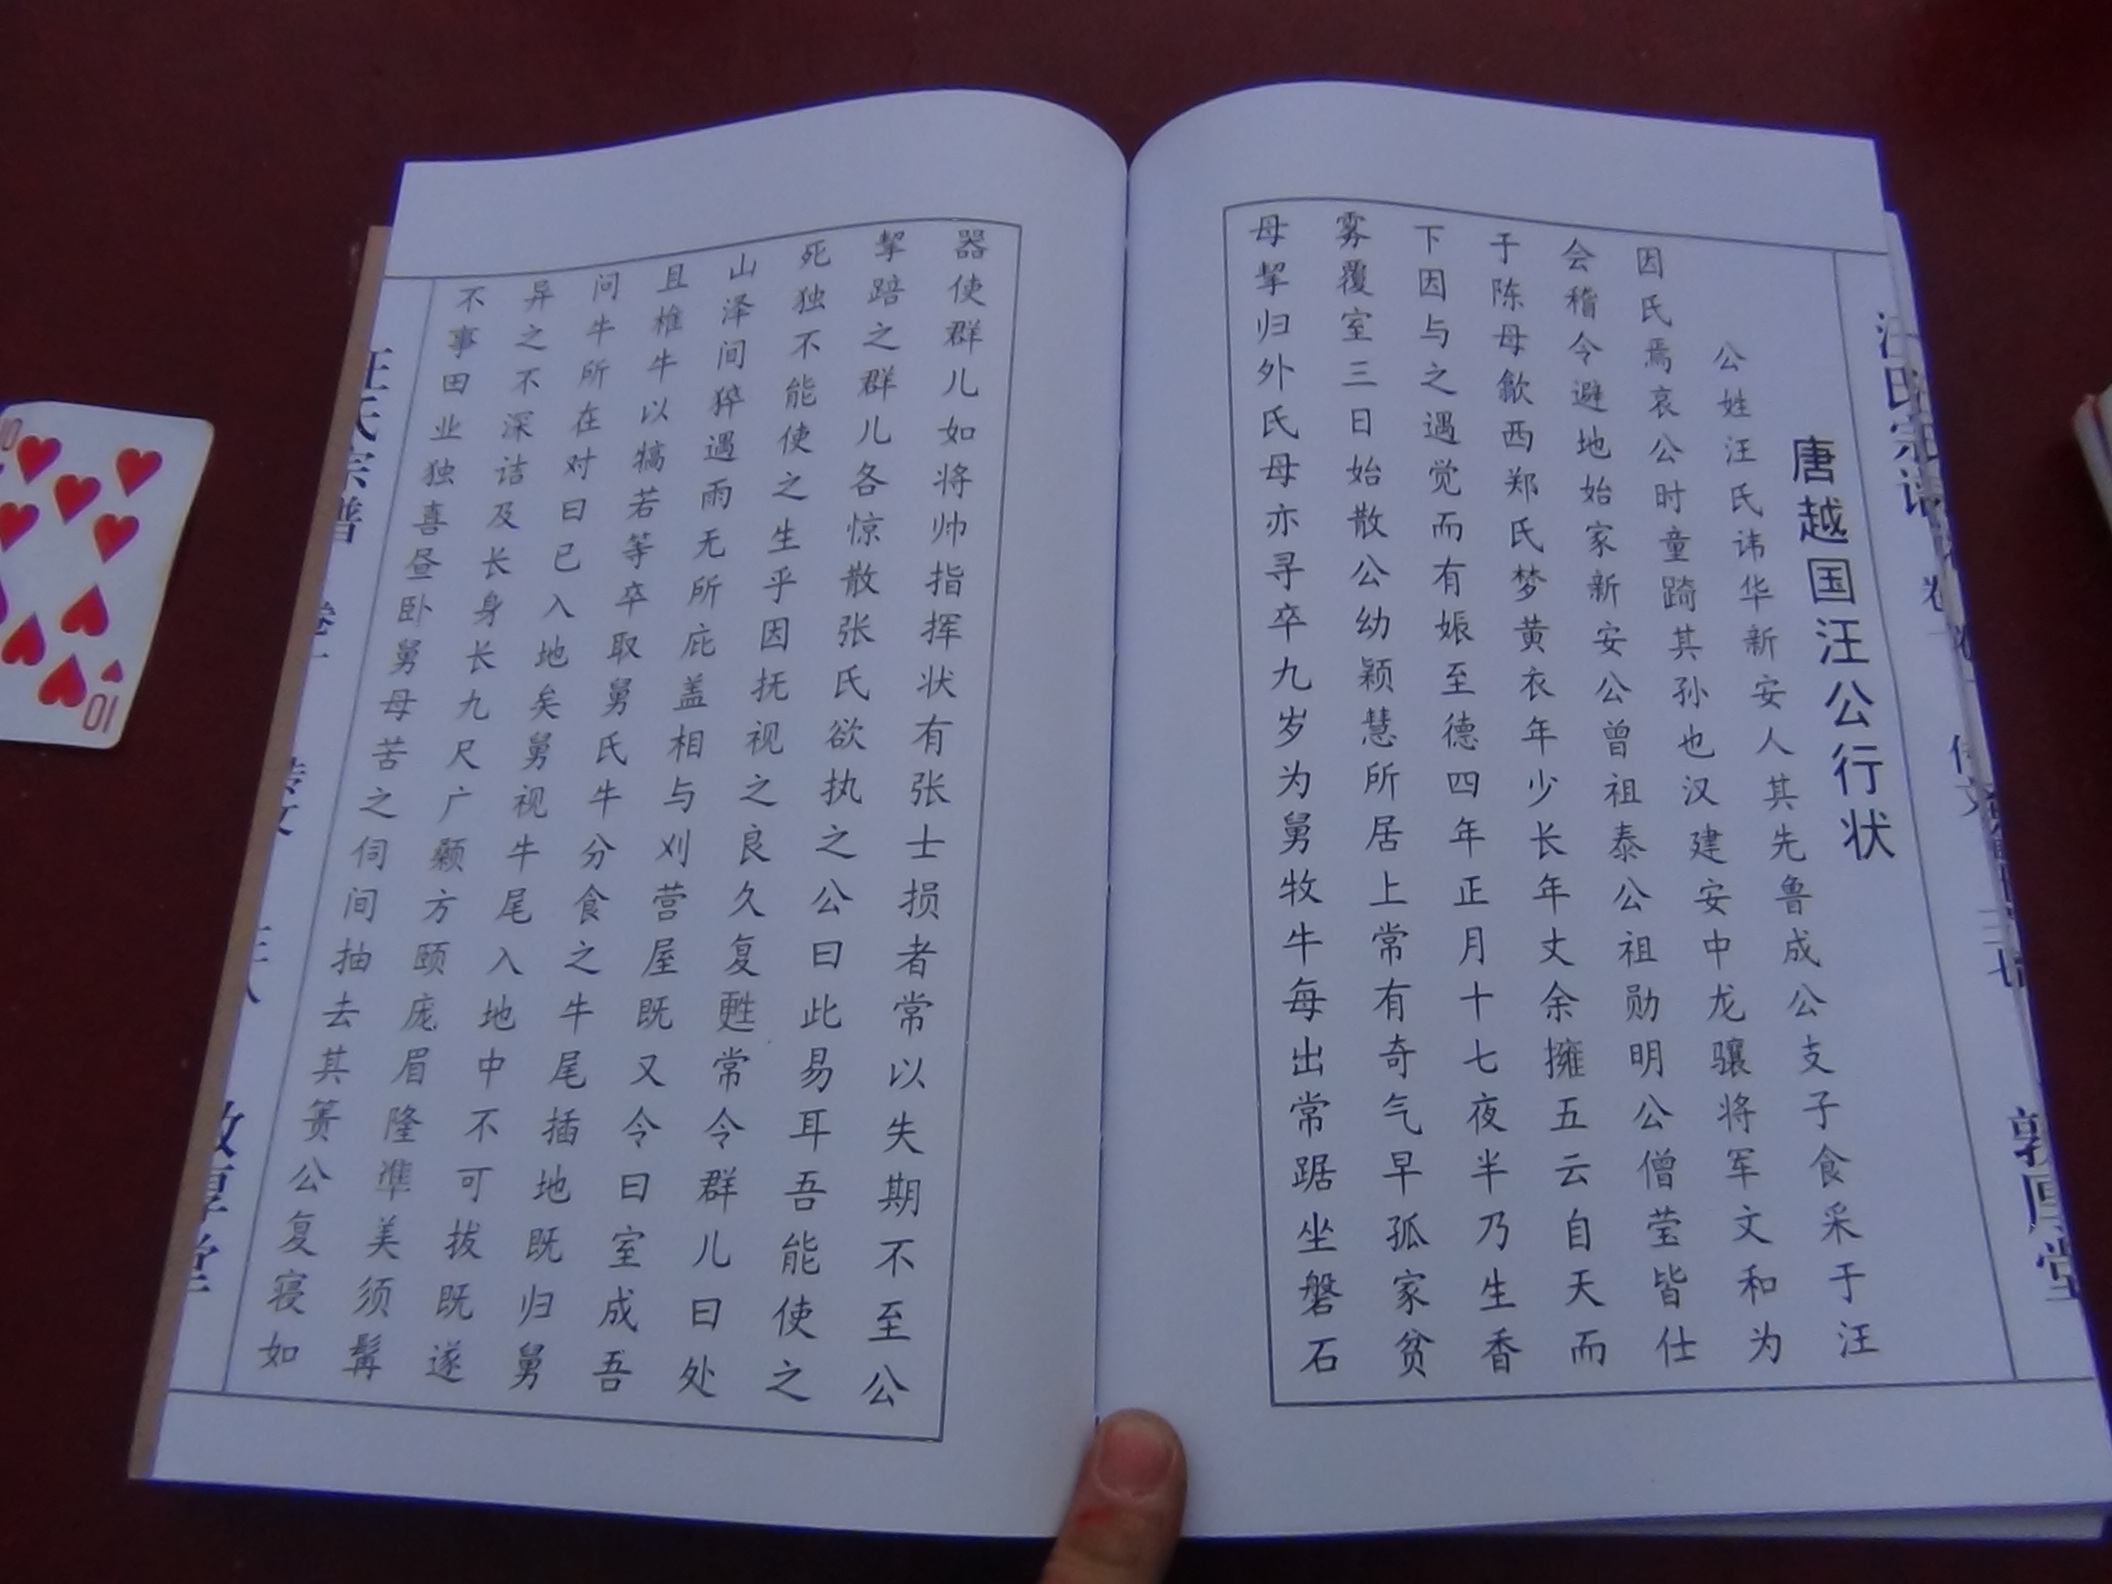 唐越国汪公行状
公姓汪氏讳华新安人其先鲁成公支子食采于汪
因氏焉哀公时童踦其孙也汉建安中龙骧将军文和为
会稽令避地始家新安公曾祖泰公祖勋明公僧莹皆仕
于陈母歙西郑氏梦黄衣年少长年丈余擁五云自天而
下因与之遇觉而有娠至德四年正月十七夜半乃生香
雾覆室三日始散公幼颖慧所居上常有奇气早孤家贫
母挈归外氏母亦寻卒九岁为舅牧牛每出常踞坐磐石
器使群儿如将帅指挥状有张士损者常以失期不至公
挈踣之群儿各惊散张氏欲执之公曰此易耳吾能使之
死独不能使之生乎因抚视之良久复甦常令群儿曰处
山泽间猝遇雨无所庇盖相与刈营屋既又令曰室成吾
且椎牛以犒若等卒取舅氏牛分食之牛尾插地既归舅
问牛所在对曰已入地矣舅视牛尾入地中不可拔既遂
异之不深诘及长身长九尺广颡方颐庞眉隆準美须髯
不事田业独喜昼卧舅母苦之伺间抽去其箦公复寝如
汪氏宗谱
敦厚堂